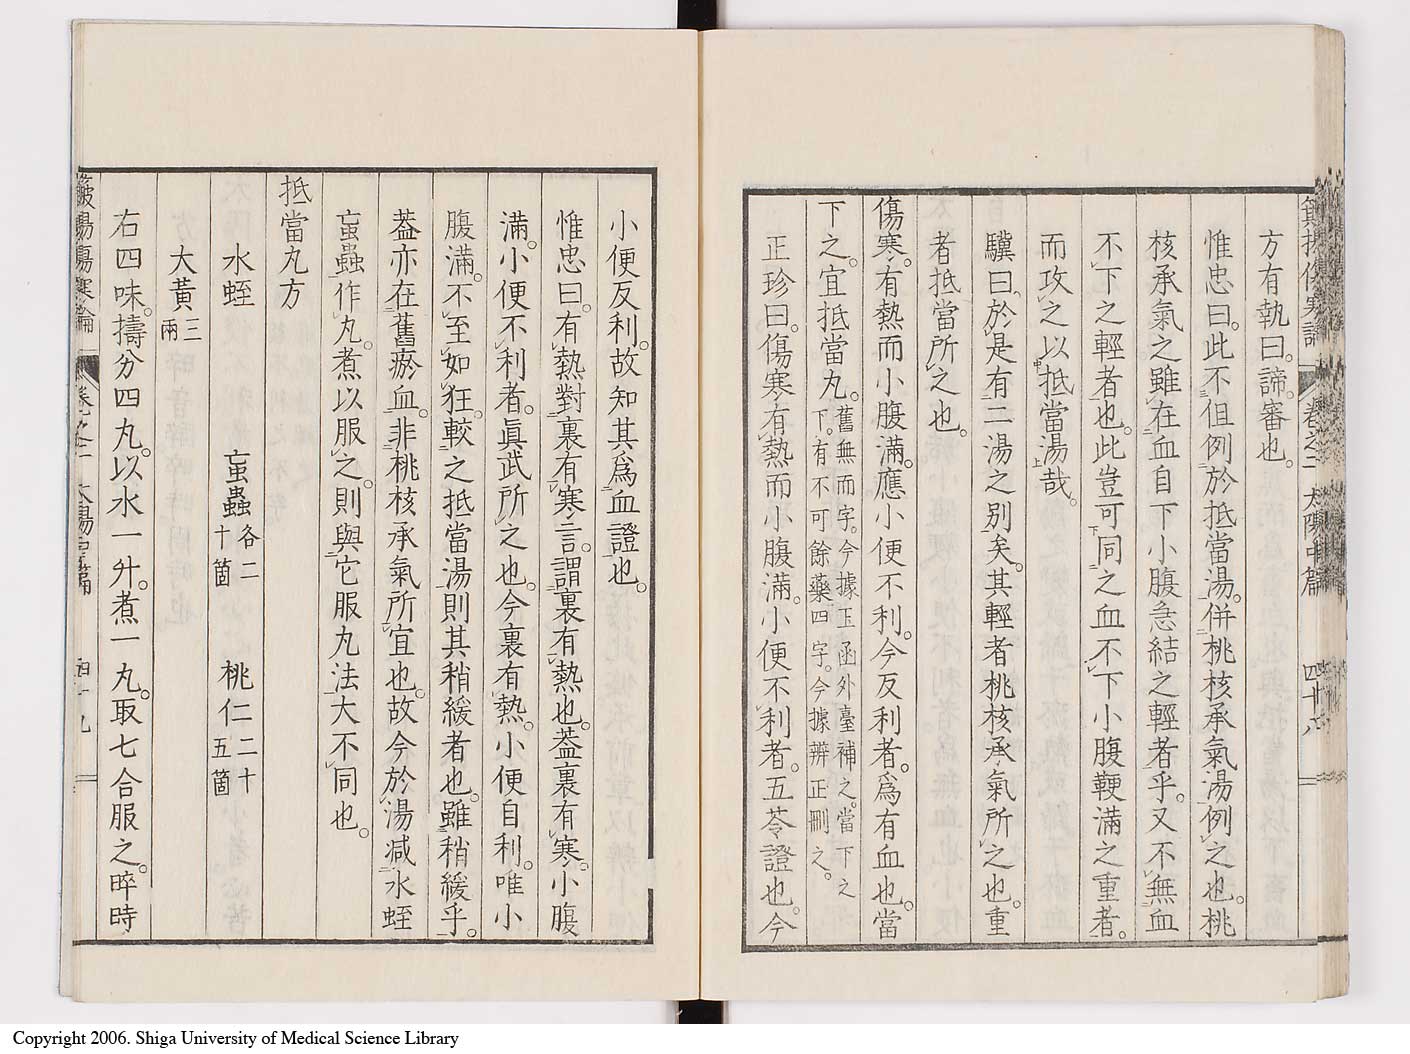 方有執曰。諦審也。
惟忠曰。此不但例於抵當湯。併桃核承氣湯例之也。桃
核承氣之雖在血自下小腹急結之輕者乎。又不無血
不下之輕者也。此豈可同之血不下小腹鞕滿之重者。
而攻之以抵當湯哉。
驥曰。於是有二湯之別矣。其輕者桃核承氣所之也。重
者抵當所之也。
傷寒。有熱而小腹滿。應小便不利。今反利者。爲有血也。當
下之。宜抵當丸。舊無而字。今據玉函外臺補之。當下之下。有不可餘藥四字。今據辨正刪之。
正珍曰。傷寒有熱而小腹滿。小便不利者。五苓證也。今
卷之二 太陽中篇 四十八
小便反利。故知其爲血證也。
惟忠曰。有熱對裏有寒言。謂裏有熱也。葢裏有寒。小腹
滿。小便不利者。眞武所之也。今裏有熱。小便自利。唯小
腹滿。不至如狂。較之抵當湯則其稍緩者也。雖稍緩乎。
葢亦在舊瘀血。非桃核承氣所宜也。故今於湯減水蛭
䖟蟲作丸。煮以服之。則與它服丸法大不同也。
抵當丸方
水蛭 䖟蟲各二十箇 桃仁二十五箇
大黃三兩
右四味。擣分四丸。以水一升。煮一丸。取七合服之。晬時
傷寒論 卷之二 太陽中篇 四十九
Copyright 2006. Shiga University of Medical Science Library